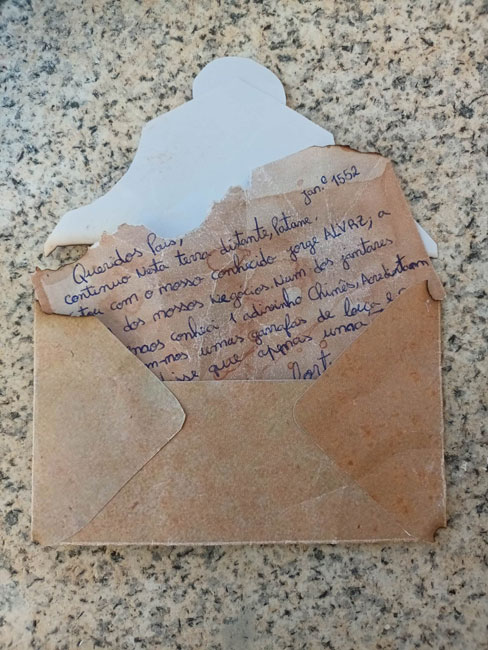 jan.º 1552
Queridos Pais,
continuo Nesta terra distante, Patane.
tou com o nosso conhecido Jorge ALVRZ, a
dos nossos Negócios. Num dos jantares
conhia 1 adivinho Chinês,
m-nos umas garrafas de loiça e
isse que apenas uma
Port